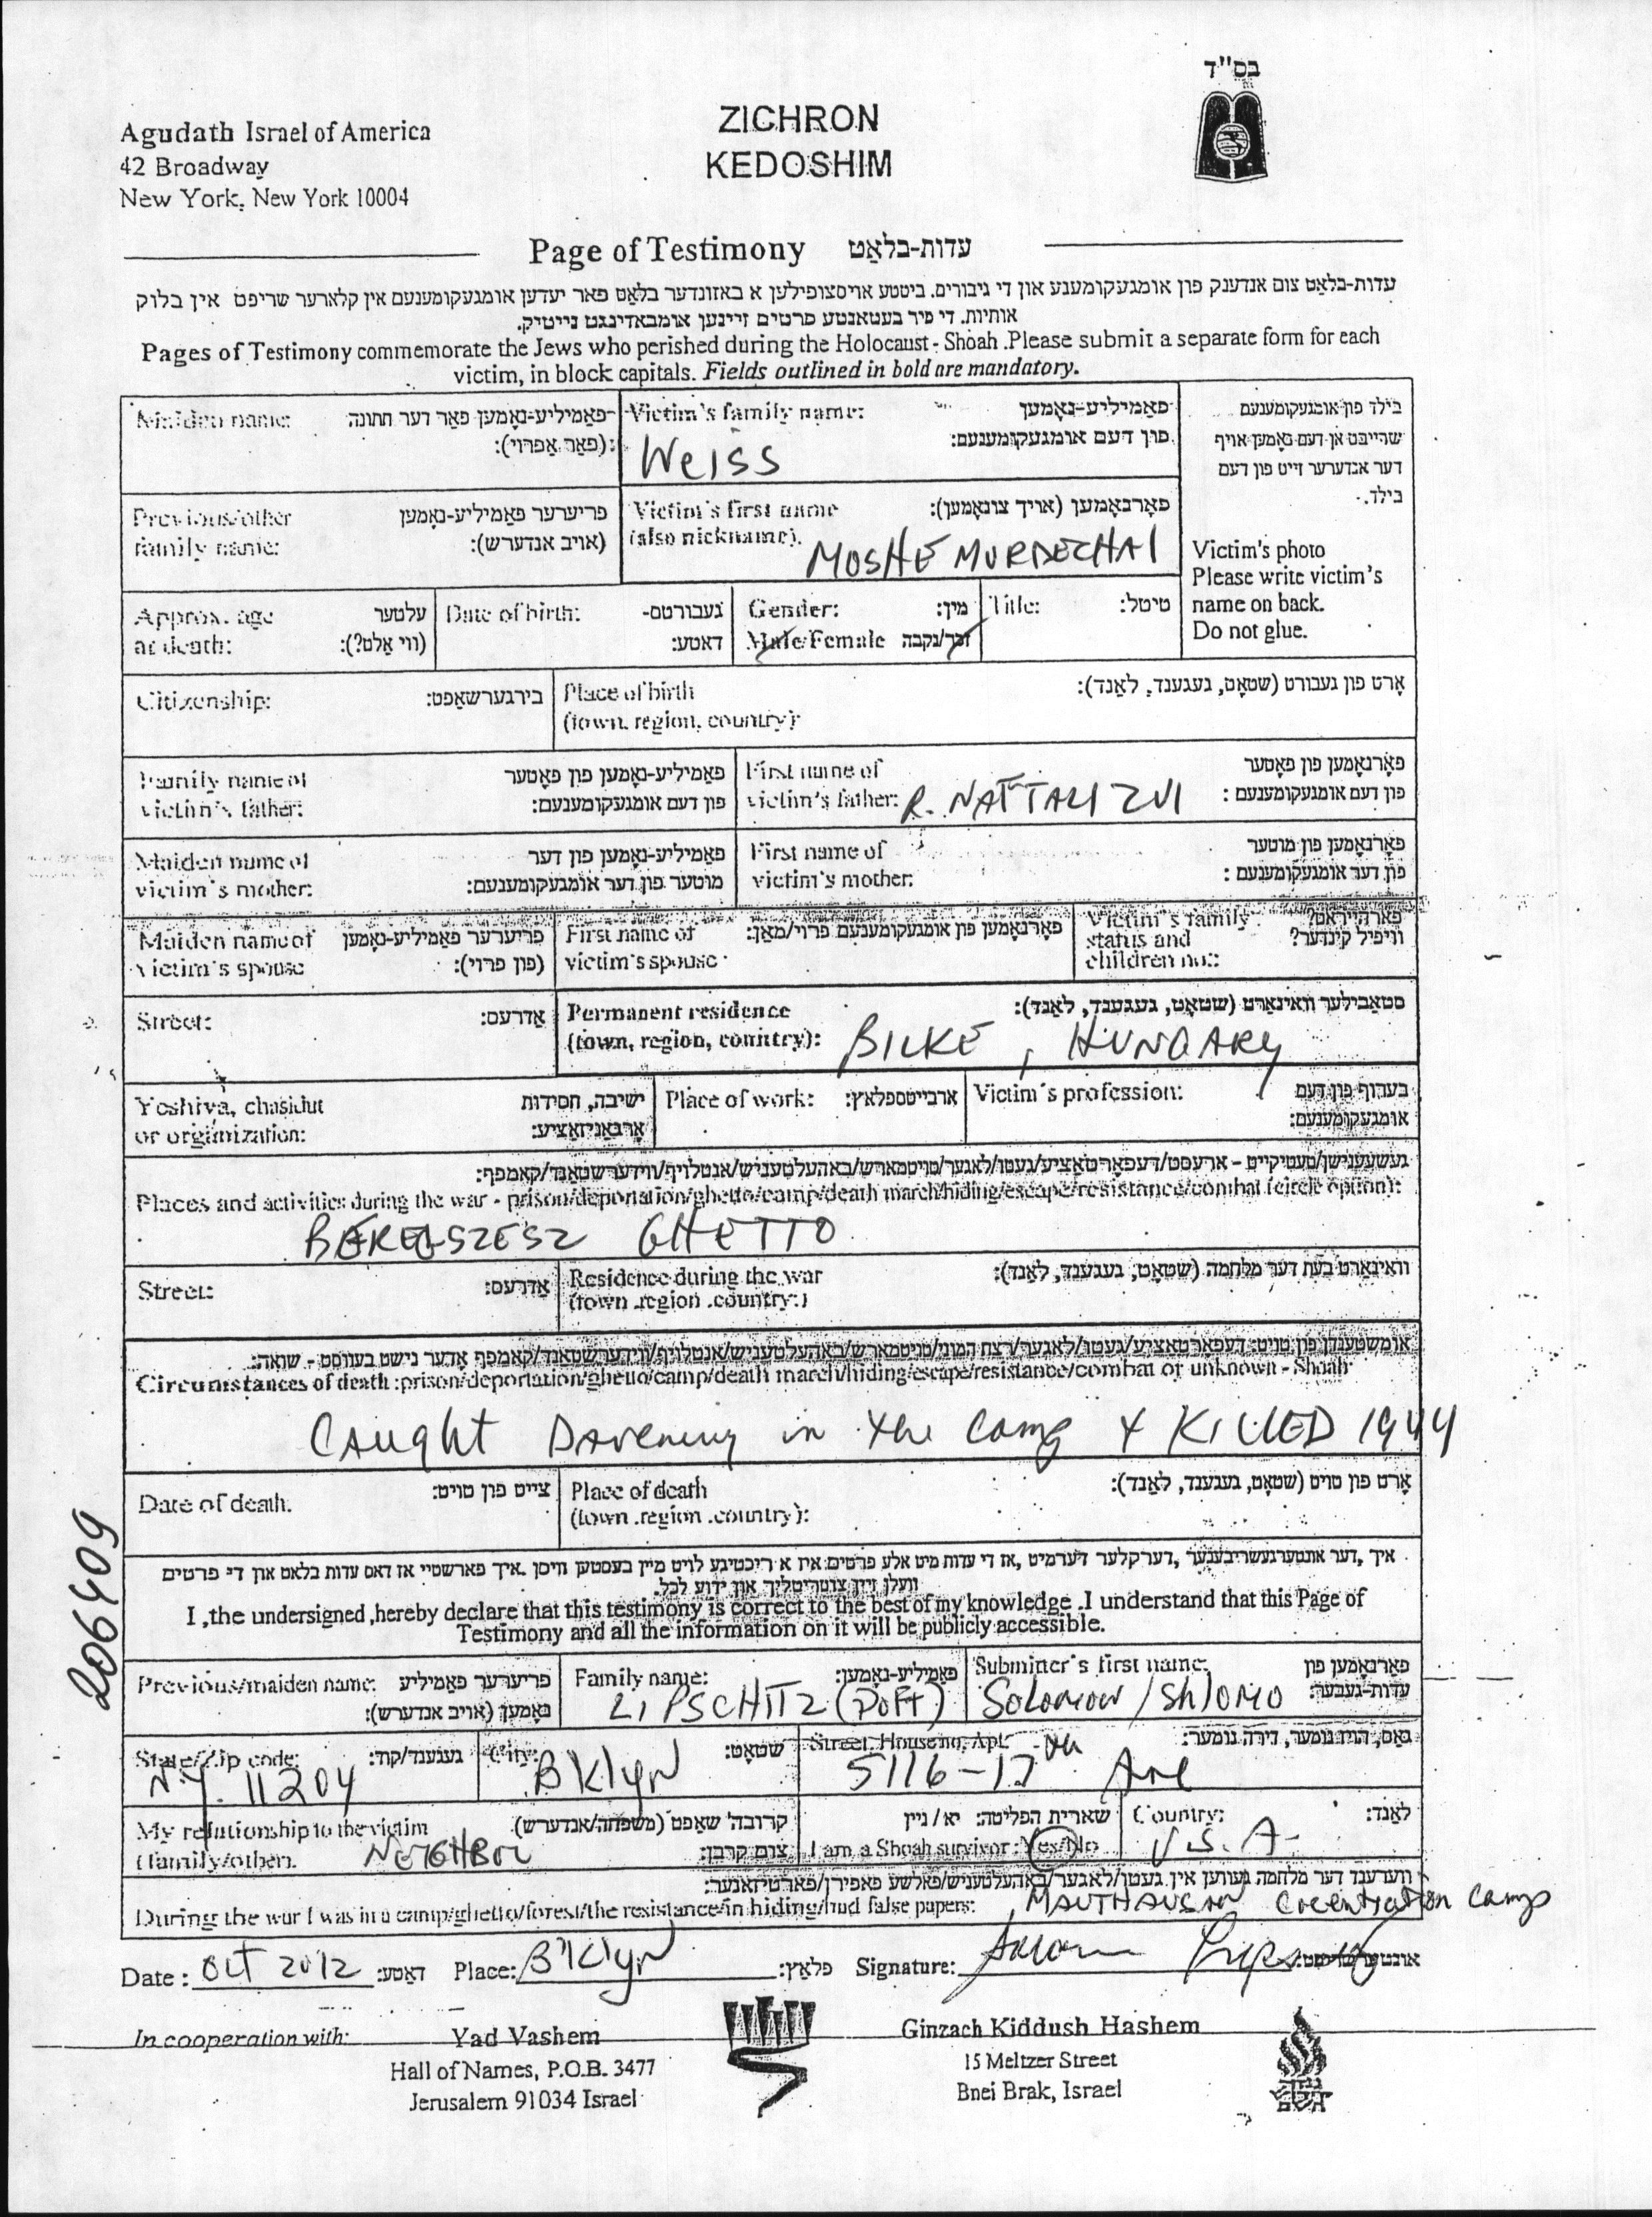 בס"ד
Agudath Israel of America
42 Broadway
New York, New York 10004
ZICHRON
KEDOSHIM
Page of Testimony עדות-בלאַט
עדות-בלאַט צום אנדענק פון אומגעקומענע און די גיבורים. ביטטע אויסצופילען א באזונדער בלאַט פאר יעדען אומגעקומענעם אין קלארער שריפט אין בלוק
אותיות. די פיר בעטאנטע פרטים זיינען אומבאדינגט נייטיק.
Pages of Testimony commemorate the Jews who perished during the Holocaust - Shoah .Please submit a separate form for each
victim, in block capitals. Fields outlined in bold are mandatory.
Maiden name: פאַמיליע-נאָמען פאַר דער חתונה
(פאַר אַ פרוי):
Victim's family name: פאַמיליע-נאָמען
פון דעם אומגעקומענעם:
Weiss
בילד פון אומגעקומענעם
שרייבט אן דעם נאָמען אויף
דער אנדערער זייט פון דעם
בילד.
Victim's photo
Please write victim's
name on back.
Do not glue.
Previous/other פריערער פאַמיליע-נאָמען
family name: (אויב אנדערש):
Victim's first name פאָרנאָמען (אויך צונאָמען):
(also nickname).
MOSHE MURDECHAI
Approx. age עלטער
at death: (ווי אַלט?):
Date of birth: געבורטס-
דאטע:
Gender: מין:
Male/Female זכר/נקבה
Title: טיטל:
Citizenship: בירגערשאַפט:
Place of birth אָרט פון געבורט (שטאָט, געגענד, לאַנד):
(town, region, country):
Family name of פאַמיליע-נאָמען פון פאָטער
victim's father: פון דעם אומגעקומענעם:
First name of פאָרנאָמען פון פאָטער
victim's father: פון דעם אומגעקומענעם :
R. NAFTALI ZVI
Maiden name of פאַמיליע-נאָמען פון דער
victim's mother: מוטער פון דער אומגעקומענעם:
First name of פאָרנאָמען פון מוטער
victim's mother: פון דער אומגעקומענעם :
Maiden name of פריערער פאַמיליע-נאָמען
victim's spouse (פון פרוי):
First name of פאָרנאָמען פון אומגעקומענעם פרוי/מאַן:
victim's spouse
Victim's family פארהייראט?
status and וויפיל קינדער?
children no.:
Street: אַדרעס:
Permanent residence סטאַבילער וואוינארט (שטאָט, געגענד, לאַנד):
(town, region, country): BILKE, HUNGARY
Yeshiva, chasidut ישיבה, חסידות
or organization: אָרגאַניזאַציע:
Place of work: ארבייטספלאץ:
Victim's profession: בערוף פון דעם
אומגעקומענעם:
געשעענישן/טעטיקייט - ארעסט/דעפארטאַציע/געטו/לאגער/טויטמארש/באהעלטעניש/אנטלויף/ווידערשטאַנד/קאמפף:
Places and activities during the war - prison/deportation/ghetto/camp/death march/hiding/escape/resistance/combat (circle option):
BEREGSZESZ GHETTO
Street: אַדרעס:
Residence during the war וואוינארט בעת דער מלחמה (שטאָט, געגענד, לאַנד):
(town .region .country:)
אומשטענדן פון טויט: דעפארטאציע/געטו/לאגער/רצח המוני/טויטמארש/באהעלטעניש/אנטלויף/ווידערשטאנד/קאמפף אָדער נישט בעוואוסט - שואה:
Circumstances of death :prison/deportation/ghetto/camp/death march/hiding/escape/resistance/combat or unknown - Shoah
CAught DAvening in the Camp & KILLED 1944
Date of death. צייט פון טויט:
Place of death אָרט פון טויט (שטאָט, געגענד, לאַנד):
(town .region .country ):
איך ,דער אונטערגעשריבענער ,דערקלער דערמיט ,אז די עדות מיט אלע פרטים איז א ריכטיגע לויט מיין בעסטען וויסן .איך פארשטיי אז דאס עדות בלאט און די פרטים
וועלן זיין צוטריטליך און ידוע לכל.
I ,the undersigned ,hereby declare that this testimony is correct to the best of my knowledge .I understand that this Page of
Testimony and all the information on it will be publicly accessible.
Previous/maiden name: פריערער פאַמיליע
נאָמען (אויב אנדערש):
Family name: פאַמיליע-נאָמען:
LIPSCHITZ (DOFT)
Submitter's first name: פאָרנאָמען פון
עדות-געבער:
Solomon / Shlomo
State/Zip code: געגענד/קוד:
N.Y. 11204
City: שטאָט:
BKlyn
Street, House no, Apt. גאַס, הויז נומער, דירה נומער:
5116-17 th Ave
My relationship to the victim קרובה' שאַפט (משפחה/אנדערש)
(family/other). NEIGHBOR צום קרבן:
שארית הפליטה: יא / ניין
I am a Shoah survivor : Yes/No
Country: לאַנד:
U.S.A.
ווערענד דער מלחמה געווען אין געטו/לאגער/באהעלטעניש/פאלשע פאפירן/פארטיזאנער:
During the war I was in a camp/ghetto/forest/the resistance/in hiding/had false papers: MAUTHAUSAN Cocentration Camp
Date : Oct 2012 דאַטע: Place: B'Klyn פלאַץ: Signature:
In cooperation with: Yad Vashem
Hall of Names, P.O.B. 3477
Jerusalem 91034 Israel
Ginzach Kiddush Hashem
15 Meltzer Street
Bnei Brak, Israel
206409